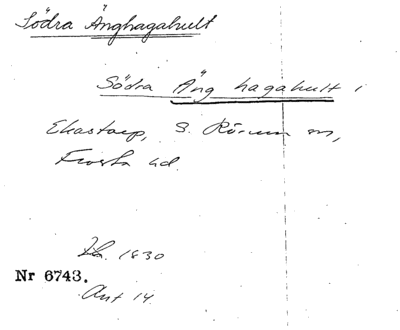 Södra Änghagahult
Södra Äng hagahult i
Ekastorp, S. Rörum sn,
Frosta hd.
1830
Nr 6743.
Akt 14